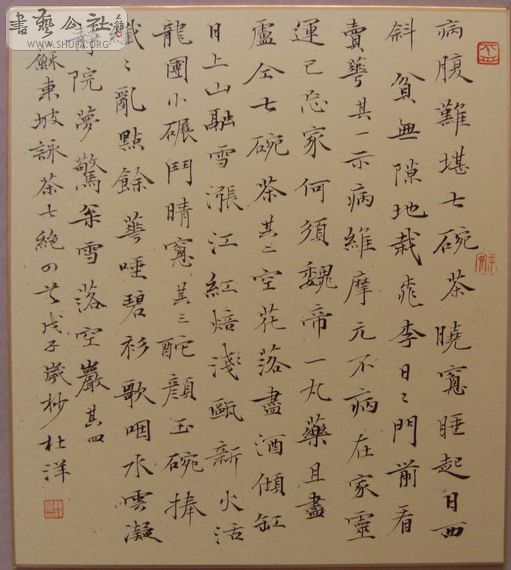 病腹難堪七碗茶曉窻睡起日西
斜貧無隙地栽桃李日〻門前看
賣華其一示病維摩元不病在家靈
運已忘家何須魏帝一丸藥且盡
盧仝七碗茶其二空花落盡酒傾缸
日上山融雪漲江紅焙淺甌新火活
龍團小碾鬥晴窻其三酡顏玉碗捧
纖〻亂點餘華唾碧衫歌咽水雲凝
靜院夢驚枀雪落空巖其四
蘇東坡詠茶七絕四首戊子歲杪杜洋
書藝公社
WWW.SHUFA.ORG